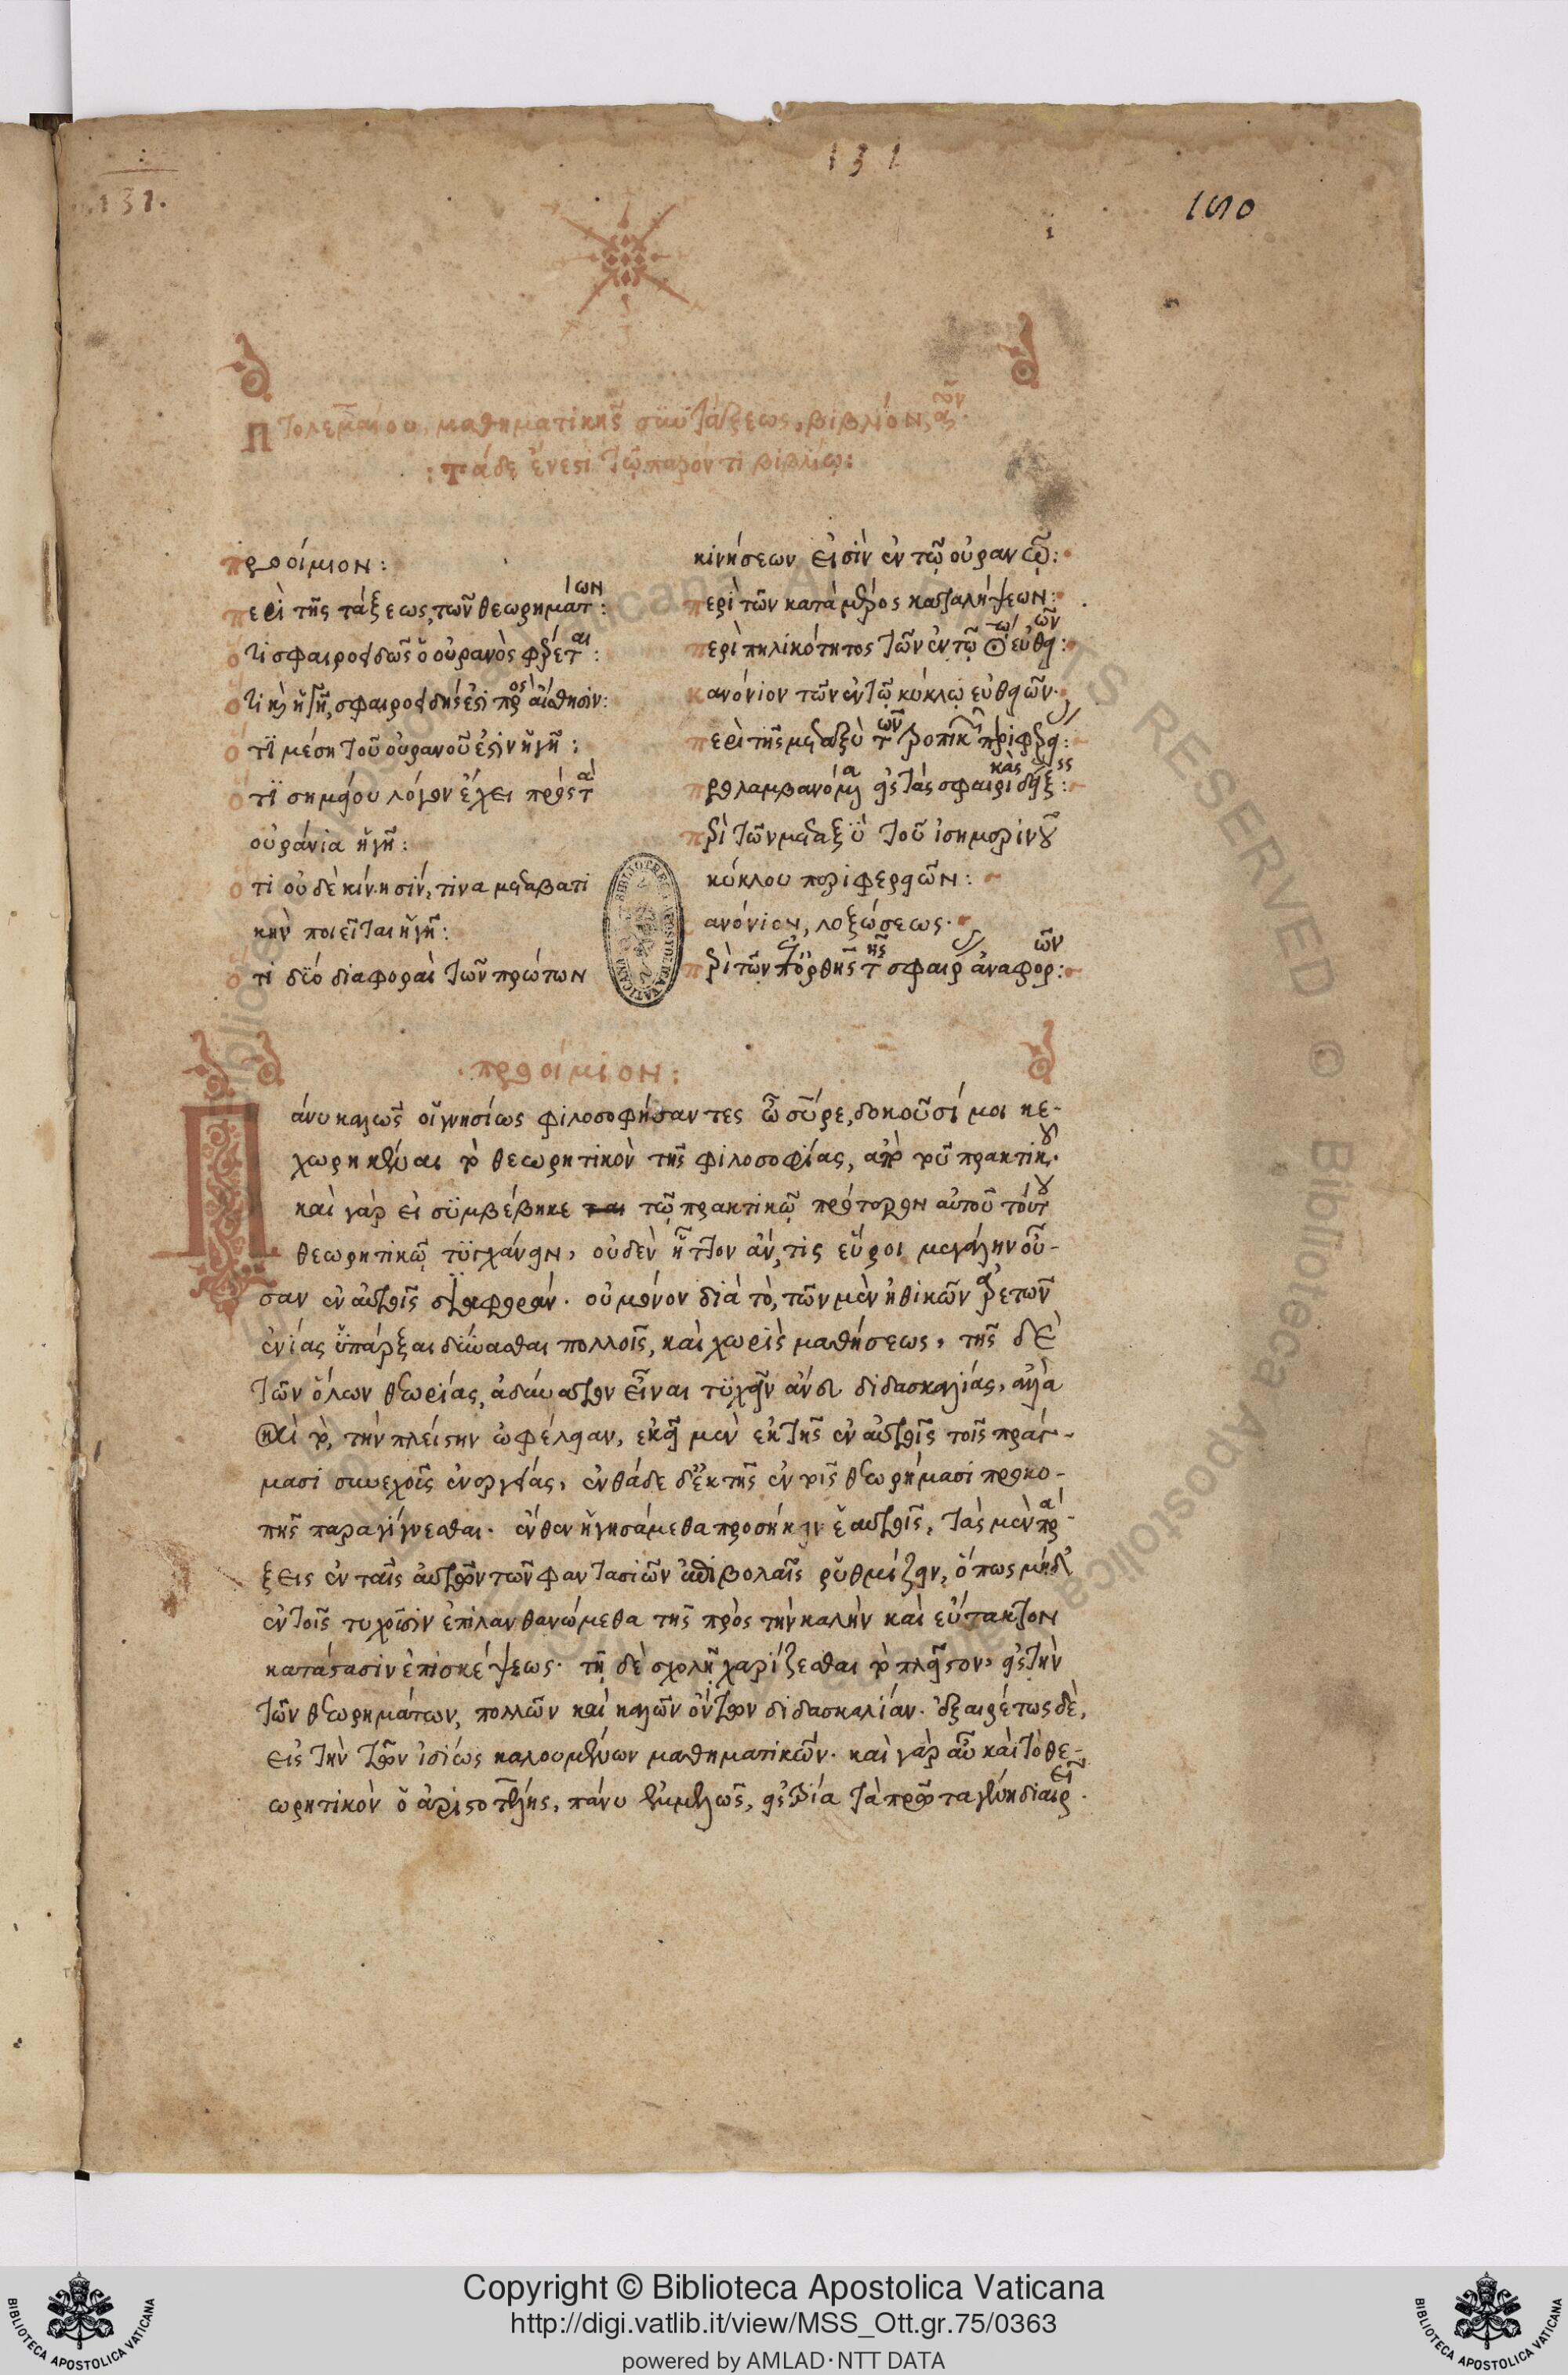 131.
131
150
Πτολεμαίου μαθηματικῆς συντάξεως, βιβλίον, αον
: τάδε ἔνεστι τῶ παρόντι βιβλίω:
προοίμιον:
περὶ τῆς τάξεως, τῶν θεωρηματίων:
ὅτι σφαιροειδῶς ὁ οὐρανὸς φέρεται:
ὅτι καὶ ἡ γῆ, σφαιροειδής ἐστι πρὸς αἴσθησιν:
ὅτι μέση τοῦ οὐρανοῦ ἐστὶν ἡ γῆ:
ὅτι σημείου λόγον ἔχει πρὸς τὰ
οὐράνια ἡ γῆ:
ὅτι οὐδὲ κίνησίν, τινα μεταβατι
κὴν ποιεῖται ἡ γῆ:
ὅτι δύο διαφοραὶ τῶν πρώτων
κινήσεων εἰσὶν ἐν τῶ οὐρανῶ:
περὶ τῶν κατὰ μέρος καταλήψεων:
περὶ πηλικότητος τῶν ἐν τῶ κύκλω εὐθειῶν:
κανόνιον τῶν ἐν τῶ κύκλω εὐθειῶν.
περὶ τῆς μεταξὺ τῶν τροπικῶν περιφερείας:
προλαμβανόμενα εἰς τὰς σφαιρικὰς δείξεις:
περὶ τῶν μεταξὺ τοῦ ἰσημερινοῦ
κύκλου περιφερειῶν:
ανόνιον, λοξώσεως.
περὶ τῶν ἐπ' ὀρθῆς τῆς σφαίρας ἀναφορῶν:
προοίμιον:
Πάνυ καλῶς οἱ γνησίως φιλοσοφήσαντες ὦ σύρε, δοκοῦσί μοι κε-
χωρηκέναι τὸ θεωρητικὸν τῆς φιλοσοφίας, ἀπὸ τοῦ πρακτικοῦ.
καὶ γάρ εἰ συμβέβηκε τῶ πρακτικῶ πρότερον αὐτοῦ τούτου
θεωρητικῶ τυγχάνειν, οὐδὲν ἧττον ἄν, τις εὕροι μεγάλην οὖ-
σαν ἐν αὐτοῖς διαφοράν. οὐ μόνον διὰ τὸ, τῶν μὲν ἠθικῶν ἀρετῶν
ἐνίας ὑπάρξαι δύνασθαι πολλοῖς, καὶ χωρὶς μαθήσεως, τῆς δὲ
τῶν ὅλων θεωρίας, ἀδύνατον εἶναι τυχεῖν ἄνευ διδασκαλίας, ἀλλὰ
καὶ τῶ, τὴν πλείστην ὠφέλειαν, ἐκεῖ μὲν ἐκ τῆς ἐν αὐτοῖς τοῖς πράγ-
μασι συνεχοῖς ἐνεργείας, ἐνθάδε δ' ἐκ τῆς ἐν τοῖς θεωρήμασι προκο-
πῆς παραγίγνεσθαι. ἔνθεν ἡγησάμεθα προσήκειν ἑαυτοῖς, τὰς μὲν πρά-
ξεις ἐν ταῖς αὐτῶν τῶν φαντασιῶν ἐπιβολαῖς ῥυθμίζειν, ὅπως μηδ'
ἐν τοῖς τυχοῦσιν ἐπιλανθανώμεθα τῆς πρὸς τὴν καλὴν καὶ εὔτακτον
κατάστασιν ἐπισκέψεως. τῆ δὲ σχολῆ χαρίζεσθαι τὸ πλεῖστον, εἰς τὴν
τῶν θεωρημάτων, πολλῶν καὶ καλῶν ὄντων διδασκαλίαν. ἐξαιρέτως δὲ,
εἰς τὴν τῶν ἰδίως καλουμένων μαθηματικῶν. καὶ γὰρ αὖ καὶ τὸ θε-
ωρητικὸν ὁ ἀριστοτέλης, πάνυ ἐμμελῶς, εἰς τρία τὰ πρῶτα γένη διαιρεῖ.
Copyright © Biblioteca Apostolica Vaticana
http://digi.vatlib.it/view/MSS_Ott.gr.75/0363
powered by AMLAD·NTT DATA
BIBLIOTECA APOSTOLICA VATICANA
BIBLIOTECA APOSTOLICA VATICANA